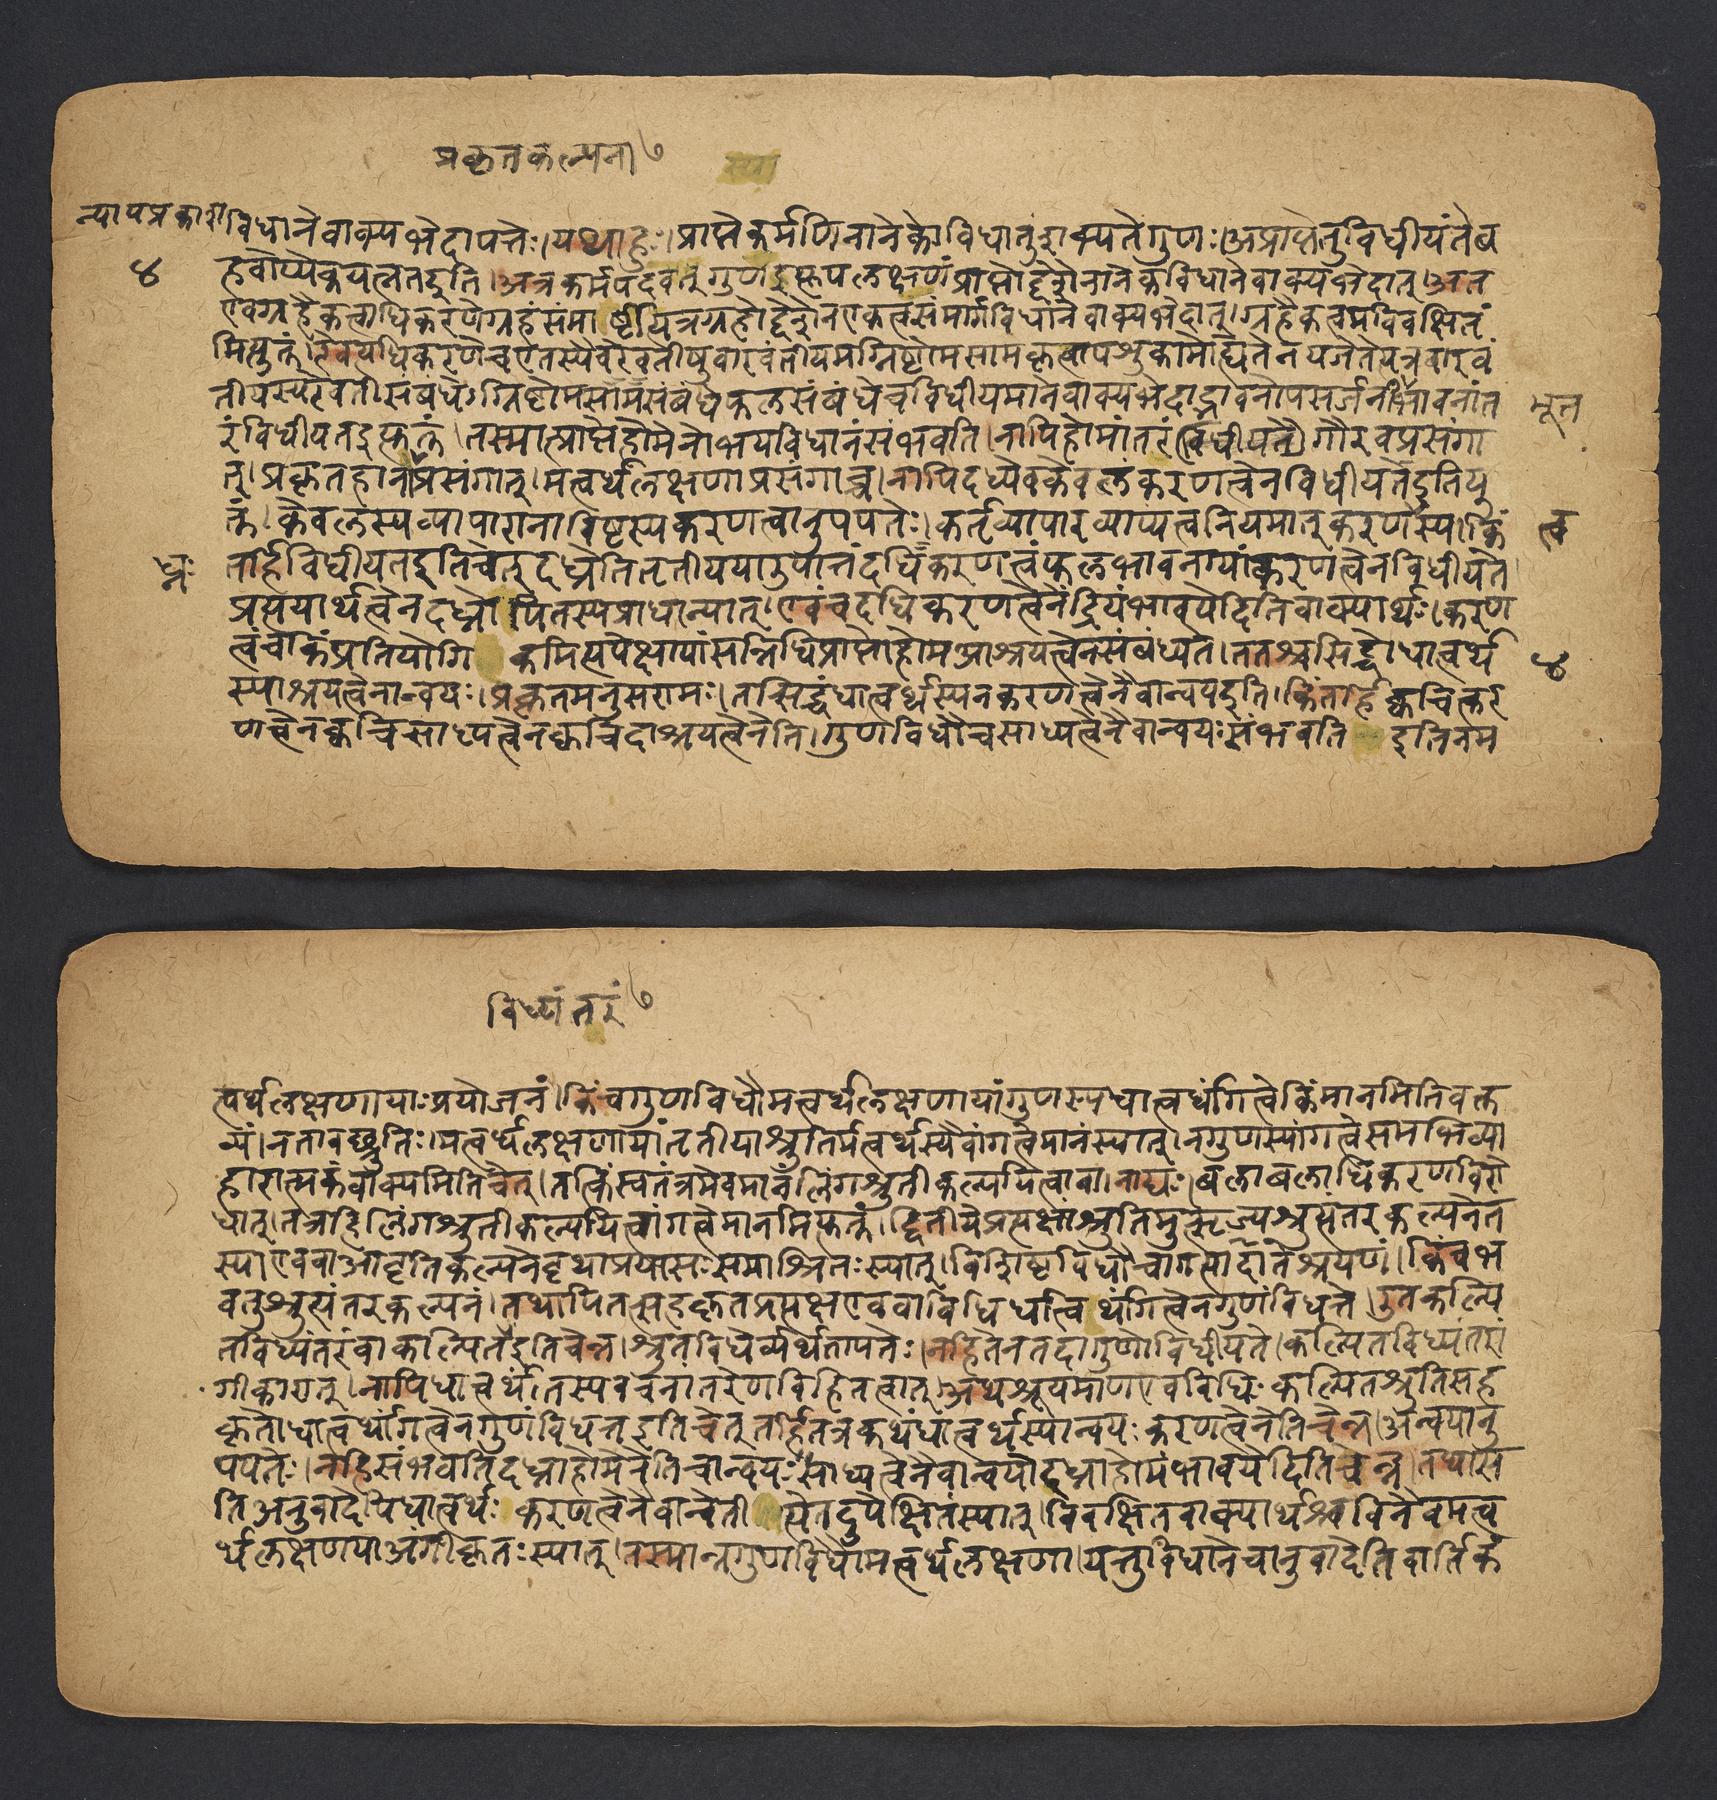 प्रकृतकल्पना७
न्यायप्रकाश
विधानेवाक्यभेदापत्तेः।यथाहुः।प्राप्तेकर्मणिनानेकोविधातुंशक्यतेगुणः।अप्राप्तेतुविधीयंतेब
४
हवोप्येकयत्नतइति।अत्रकर्मपदवत्गुणइत्युपलक्षणंप्राप्तोद्देशेनानेकविधानेवाक्यभेदात्।अत
एवग्रहैकत्वाधिकरणेग्रहंसंमार्ष्टीयत्रग्रहोद्देशेनएकत्वसंमार्गविधानेवाक्यभेदात्।ग्रहैकत्वमविवक्षितं
मित्युक्तं।रेवत्यधिकरणेचएतस्यैवरेवतीषुवारवंतीयमग्निष्टोमसामकृत्वापशुकामोह्येतेनयजेतेत्यत्रवारवं
तीयस्यरेवतीसंबंधेअग्निष्टोमसामसंबंधेफलसंबंधेचविधीयमानेवाक्यभेदाद्भावनोपसर्जनंभावनांत
मूल
रंविधीयतइत्युक्तं।तस्मात्प्राप्तेहोमेनोभयविधानंसंभवति।नापिहोमांतरंविधीयते।गौरवप्रसंगा
त्।प्रकृतहानाप्रसंगात्।मत्वर्थलक्षणाप्रसंगाच्च।नापिदध्येवकेवलंकरणत्वेनविधीयतेइतियु
क्तं।केवलस्यव्यापारानाविष्टस्यकरणत्वानुपपत्तेः।कर्तृव्यापारव्याप्यत्वनियमात्करणस्य।किं
त्व
ध्नः
तर्हिविधीयतइतिचेत्दध्नेतितृतीययाउपात्तंदधिकरणत्वंफलभावनायांकरणत्वेनविधीयते
प्रत्ययार्थत्वेनदध्नोपितस्यप्राधान्यात्।एवंचदधिकरणत्वेनेंद्रियंभावयेदितिवाक्यार्थः।करण
त्वंचकिंप्रतियोगिकमित्यपेक्षायांसन्निधिप्राप्तोहोमआश्रयत्वेनसंबंध्यते।ततश्चसिद्धोधात्वर्थ
४
स्याश्रयत्वेनान्वयः।प्रकृतमनुसरामः।तत्सिद्धंधात्वर्थस्यनकरणत्वेनैवान्वयइति।किंतर्हिक्वचित्कर
णत्वेनक्वचित्साध्यत्वेनक्वचिदाश्रयत्वेनेति।गुणविधौचसाध्यत्वेनैवान्वयःसंभवतिइतिनम
विध्यंतरं७
त्वर्थलक्षणायाःप्रयोजनं।किंचगुणविधौमत्वर्थलक्षणायांगुणस्यधात्वर्थांगत्वेकिंमानमितिवक्त
व्यं।नतावछ्रुतिः।मत्वर्थलक्षणायांतृतीयाश्रुतिर्मत्वर्थस्यैवांगत्वेमानंस्यात्।नगुणस्यांगत्वेसमभिव्या
हारात्मकंवाक्यमितिचेत्।तत्किंस्वतंत्रमेवमानंलिंगश्रुतीकल्पयित्वावा।नाद्यः।बलाबलाधिकरणविरो
धात्।तत्रहिलिंगश्रुतीकल्पयित्वांगत्वेमानमित्युक्तं।द्वितीयेप्रत्यक्षांश्रुतिमुत्सृज्यश्रुत्यंतरकल्पनेत
स्याएववाआवृत्तिकल्पनेवृथाप्रयासःसमाश्रितःस्यात्।विशिष्टविधौचागत्यातदाश्रयणं।किंचभ
वतुश्रुत्यंतरकल्पनं।तथापितत्सहकृतप्रत्यक्षएववाविधिर्धात्वर्थांगत्वेनगुणंविधत्ते।उतकल्पि
तविध्यंतरंवाकल्पितेइतिचेन्न।श्रुतविधेर्व्यर्थतापत्तेः।नहितेनतदागुणोविधीयते।कल्पितविध्यंतरां
गीकारात्।नापिधात्वर्थःतस्यवचनांतरेणविहितत्वात्।अथश्रूयमाणएवविधिःकल्पितश्रुतिसह
कृतोधात्वर्थांगत्वेनगुणंविधत्तइतिचेत्तर्हितत्रकथंधात्वर्थस्यान्वयःकरणत्वेनेतिचेन्न।अन्वयानु
पपत्तेः।नहिसंभवतिदध्नाहोमेनेतिचान्वयःसाध्यत्वेनैवान्वयोदध्नाहोमंभावयेदितिचेन्न।तथास
तिअनुवादेपिधात्वर्थःकरणत्वेनैवान्वेतीत्येतदुपेक्षितंस्यात्।विवक्षितवाक्यार्थश्चविनैवमत्व
र्थलक्षणयाअंगीकृतःस्यात्।तस्मान्नगुणविधौमत्वर्थलक्षणा।यत्तुविधानेचानुवादेतिवार्तिकं